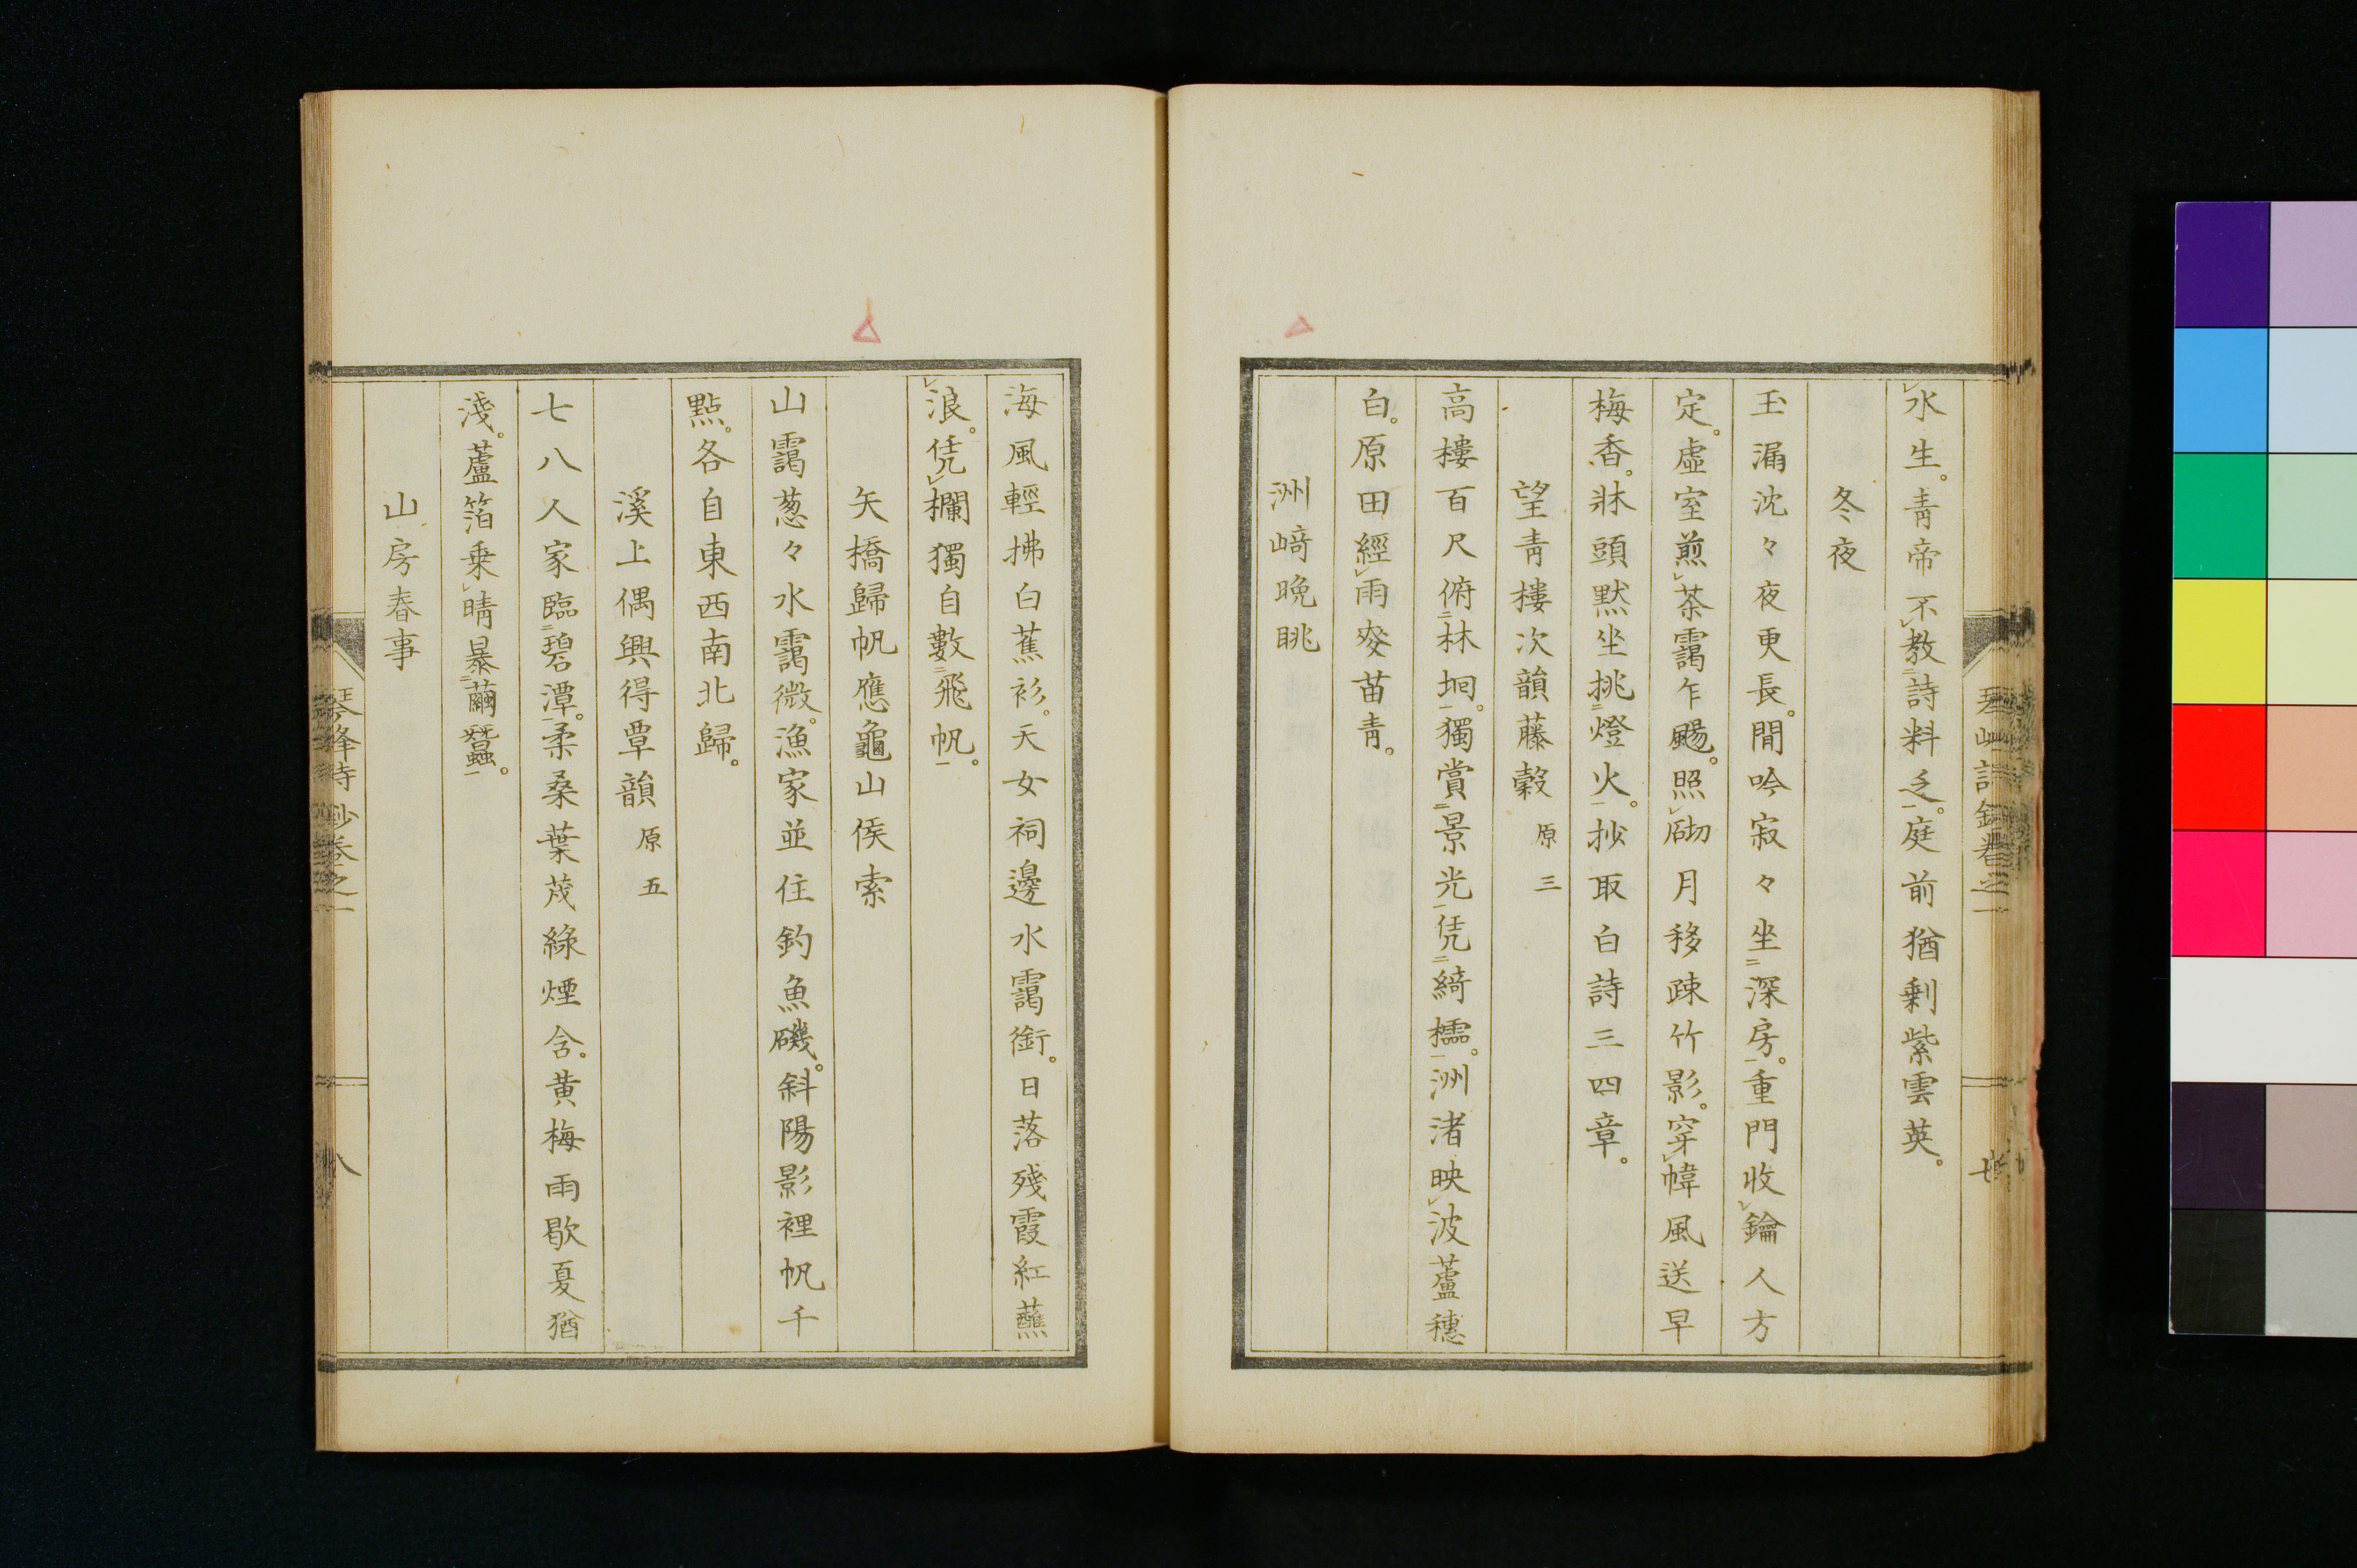 水生。青帝不教詩料乏。庭前猶剰紫雲英。
冬夜
玉漏沈々夜更長。間吟寂々坐深房。重門收鑰人方
定。虛室煎茶靄乍颺。照砌月移疎竹影。穿幃風送早
梅香。牀頭默坐挑燈火。抄取白詩三四章。
望青樓次韻藤穀 原三
高樓百尺俯林坰。獨賞景光凭綺櫺。洲渚映波蘆穗
白。原田經雨麥苗青。
洲﨑晚眺
海風輕拂白蕉衫。天女祠邊水靄銜。日落殘霞紅蘸
浪。凭欄獨自數飛帆。
矢橋歸帆應龜山侯索
山靄葱々水靄微。漁家並住釣魚磯。斜陽影裡帆千
點。各自東西南北歸。
溪上偶興得覃韻 原五
七八人家臨碧潭。柔桑葉茂綠煙含。黃梅雨歇夏猶
淺。蘆箔乗晴暴繭蠶。
山房春事
詩鈔卷之一
八